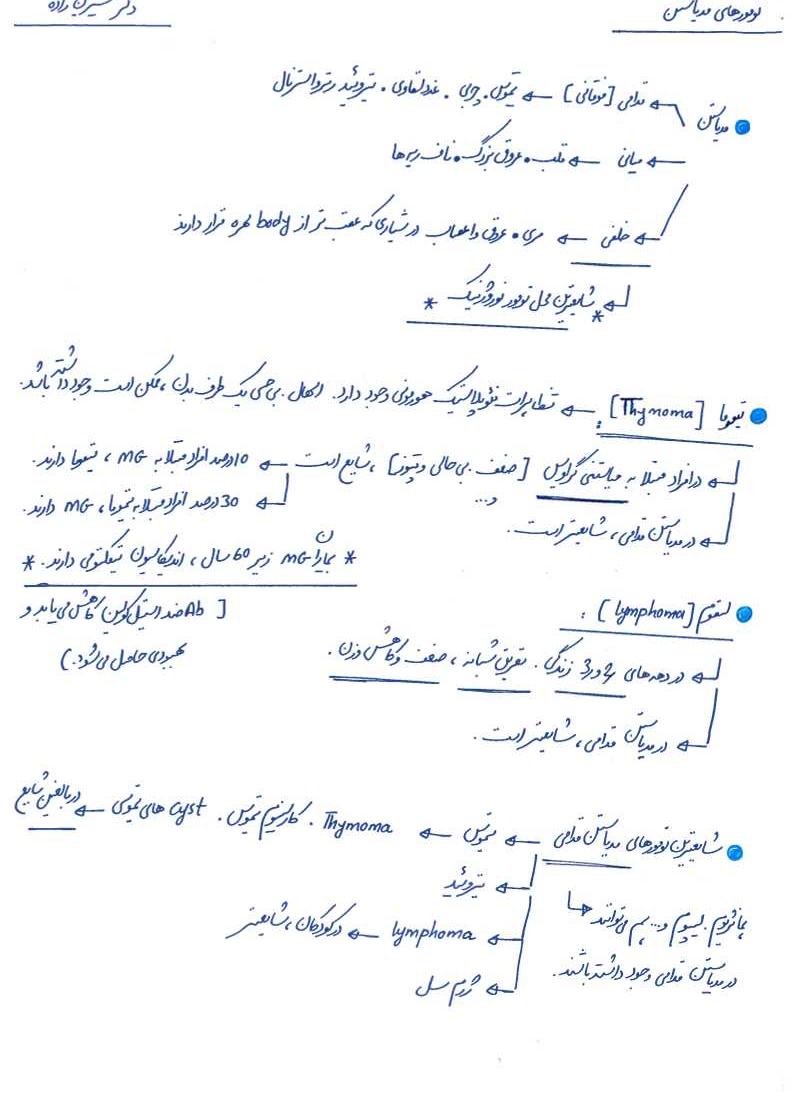 تومورهای مدیاستن
دکتر
مدیاستن
قدامی [فوقانی] ← تیموس، چربی، غدد لنفاوی، تیروئید رترواسترنال
میانی ← قلب، عروق بزرگ، ناف ریه ها
خلفی ← مری، عروق و اعصاب در شیاری که عقب تر از body مهره قرار دارند
* شایعترین محل تومور نوروژنیک *
تیموما [Thymoma] : ← تظاهرات نئوپلاستیک هورمونی وجود دارد. اسهال، بی حسی یک طرف بدن، ممکن است وجود داشته باشد.
در افراد مبتلا به میاستنی گراویس [ضعف، بی حالی و پتوز و...] ، شایع است ← 10 درصد افراد مبتلا به MG ، تیموما دارند.
30 درصد افراد مبتلا به تیموما، MG دارند.
در مدیاستن قدامی، شایعتر است.
* بیماران MG زیر 60 سال، اندیکاسیون تیمکتومی دارند. *
[ Ab ضد استیل کولین کاهش می یابد و
بهبودی حاصل می شود.)
لنفوم [lymphoma] :
در دهه های 2 و 3 زندگی. تعریق شبانه، ضعف و کاهش وزن.
در مدیاستن قدامی، شایعتر است.
شایعترین تومورهای مدیاستن قدامی ← تیموس ← Thymoma ، کارسینوم تیموس، cyst های تیموس ← در بالغین شایع
تیروئید
lymphoma ← در کودکان، شایعتر
ژرم سل
همانژیوم، لیپوم و... هم می توانند
در مدیاستن قدامی وجود داشته باشند.